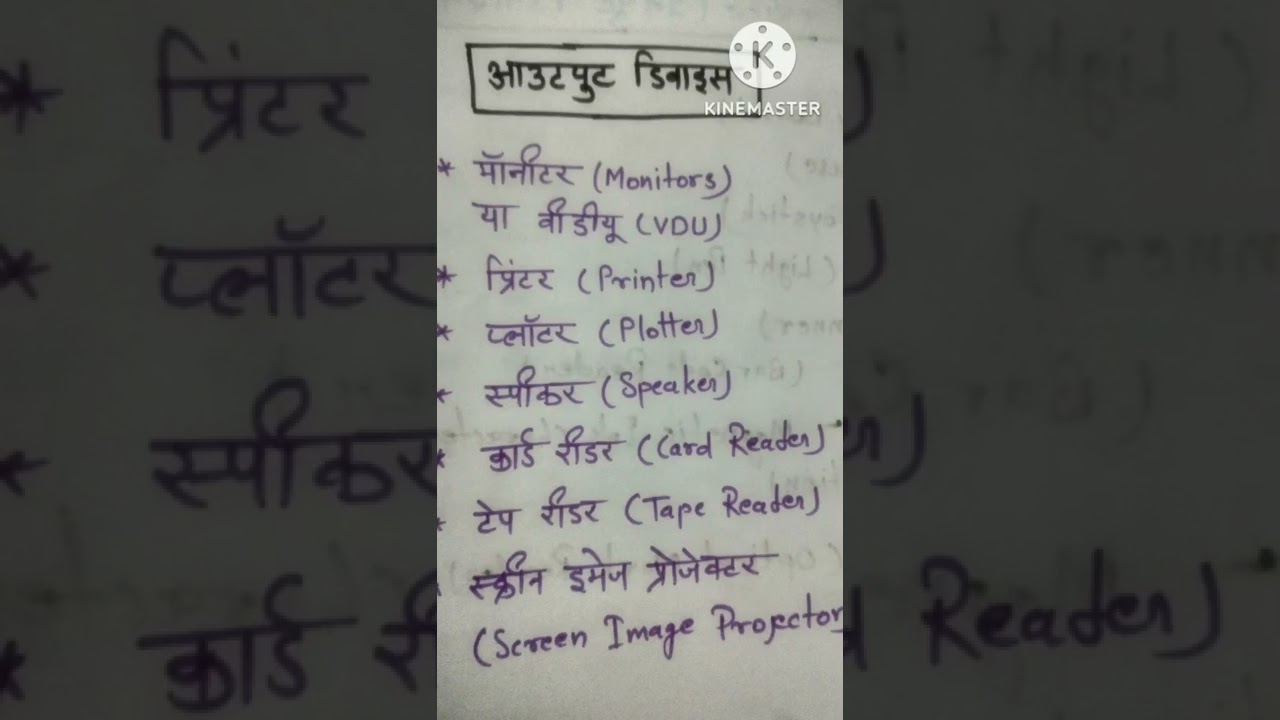 आउटपुट डिवाइस
KINEMASTER
* मॉनीटर (Monitors)
या वीडीयू (VDU)
* प्रिंटर (Printer)
* प्लॉटर (Plotter)
* स्पीकर (Speaker)
* कार्ड रीडर (Card Reader)
* टेप रीडर (Tape Reader)
* स्क्रीन इमेज प्रोजेक्टर
(Screen Image Projector)